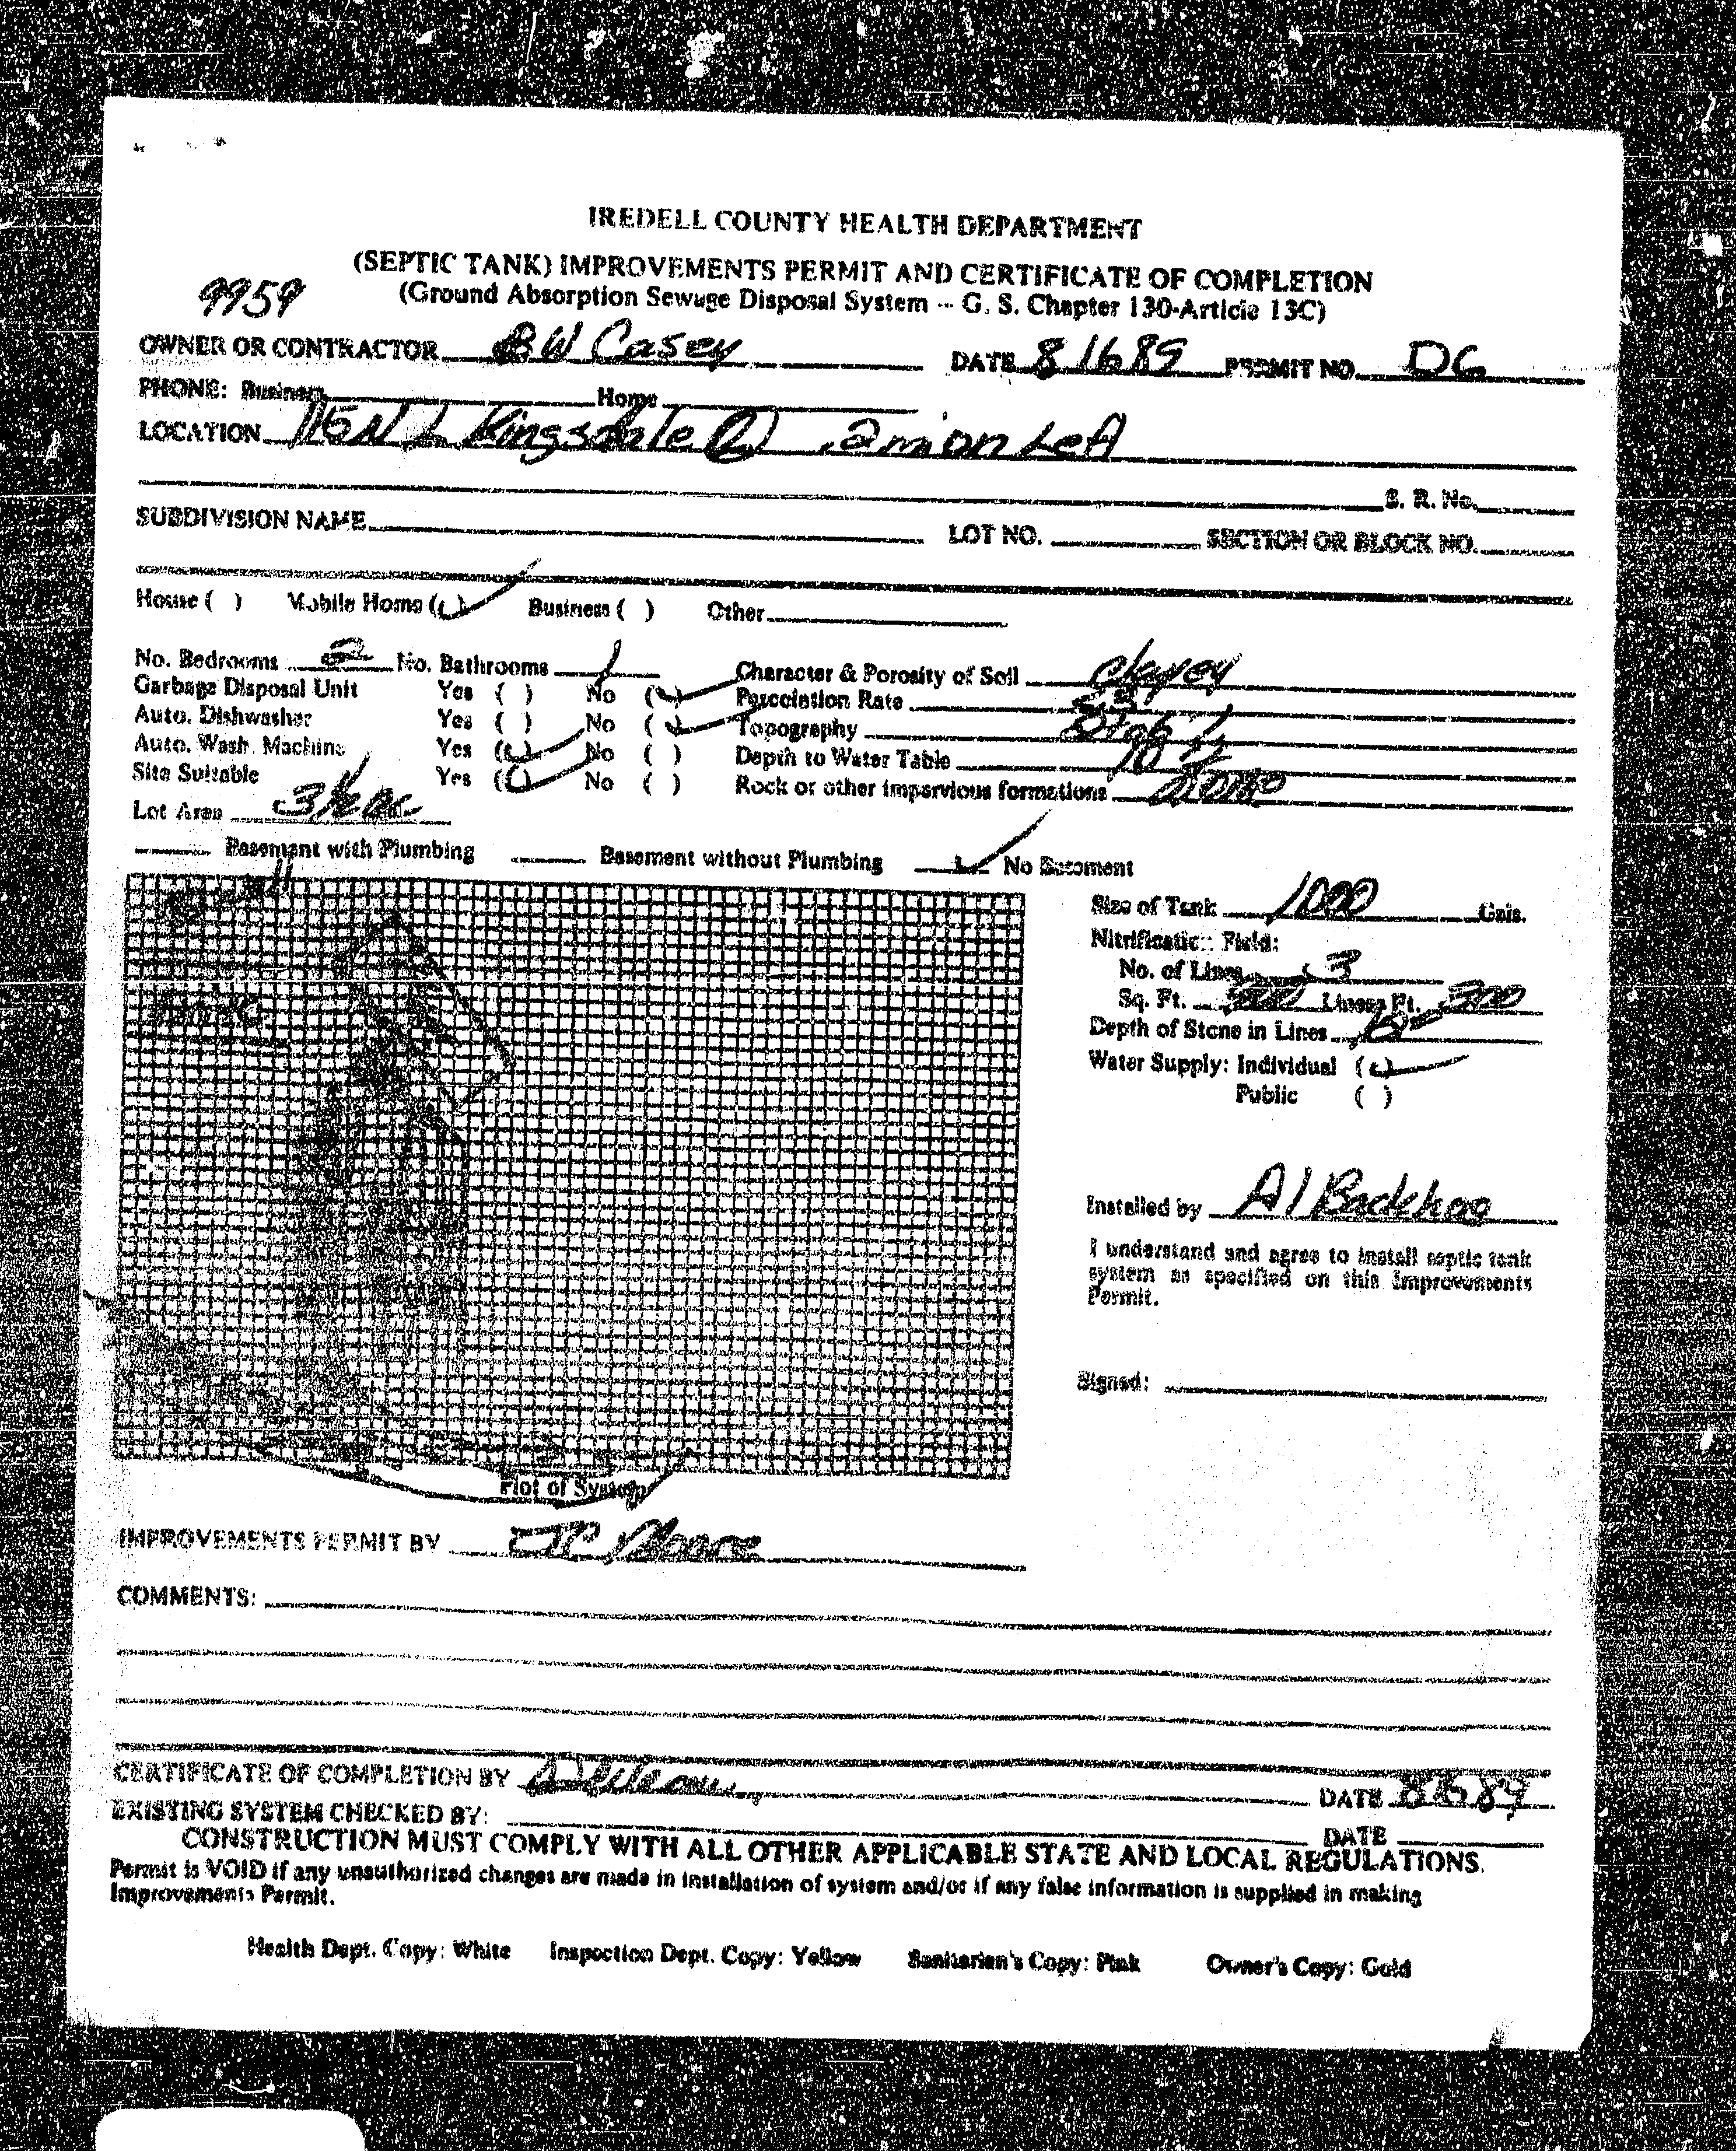 IREDELL COUNTY HEALTH DEPARTMENT
(SEPTIC TANK) IMPROVEMENTS PERMIT AND CERTIFICATE OF COMPLETION
9959 (Ground Absorption Sewage Disposal System -- G. S. Chapter 130-Article 13C)
OWNER OR CONTRACTOR BW Casey DATE 8 16 89 PERMIT NO. DG
PHONE: Business Home
LOCATION 115N L Kingsdale (L) .2 mi on Left
S. R. No.
SUBDIVISION NAME LOT NO. SECTION OR BLOCK NO.
House ( ) Mobile Home (✓) Business ( ) Other
No. Bedrooms 2 No. Bathrooms 1 Character & Porosity of Soil Clayey
Garbage Disposal Unit Yes ( ) No (✓) Percolation Rate
Auto. Dishwasher Yes ( ) No (✓) Topography
Auto. Wash. Machine Yes (✓) No ( ) Depth to Water Table
Site Suitable Yes (✓) No ( ) Rock or other impervious formations
Lot Area
Basement with Plumbing Basement without Plumbing ✓ No Basement
Size of Tank 1000 Gals.
Nitrification Field:
No. of Lines 3
Sq. Ft. Linear Ft. 300
Depth of Stone in Lines
Water Supply: Individual (✓)
Public ( )
Installed by Al Backhoe
I understand and agree to install septic tank
system as specified on this Improvements
Permit.
Signed:
Plot of System
IMPROVEMENTS PERMIT BY
COMMENTS:
CERTIFICATE OF COMPLETION BY DATE
EXISTING SYSTEM CHECKED BY: DATE
CONSTRUCTION MUST COMPLY WITH ALL OTHER APPLICABLE STATE AND LOCAL REGULATIONS.
Permit is VOID if any unauthorized changes are made in installation of system and/or if any false information is supplied in making
Improvements Permit.
Health Dept. Copy: White Inspection Dept. Copy: Yellow Sanitarian's Copy: Pink Owner's Copy: Gold